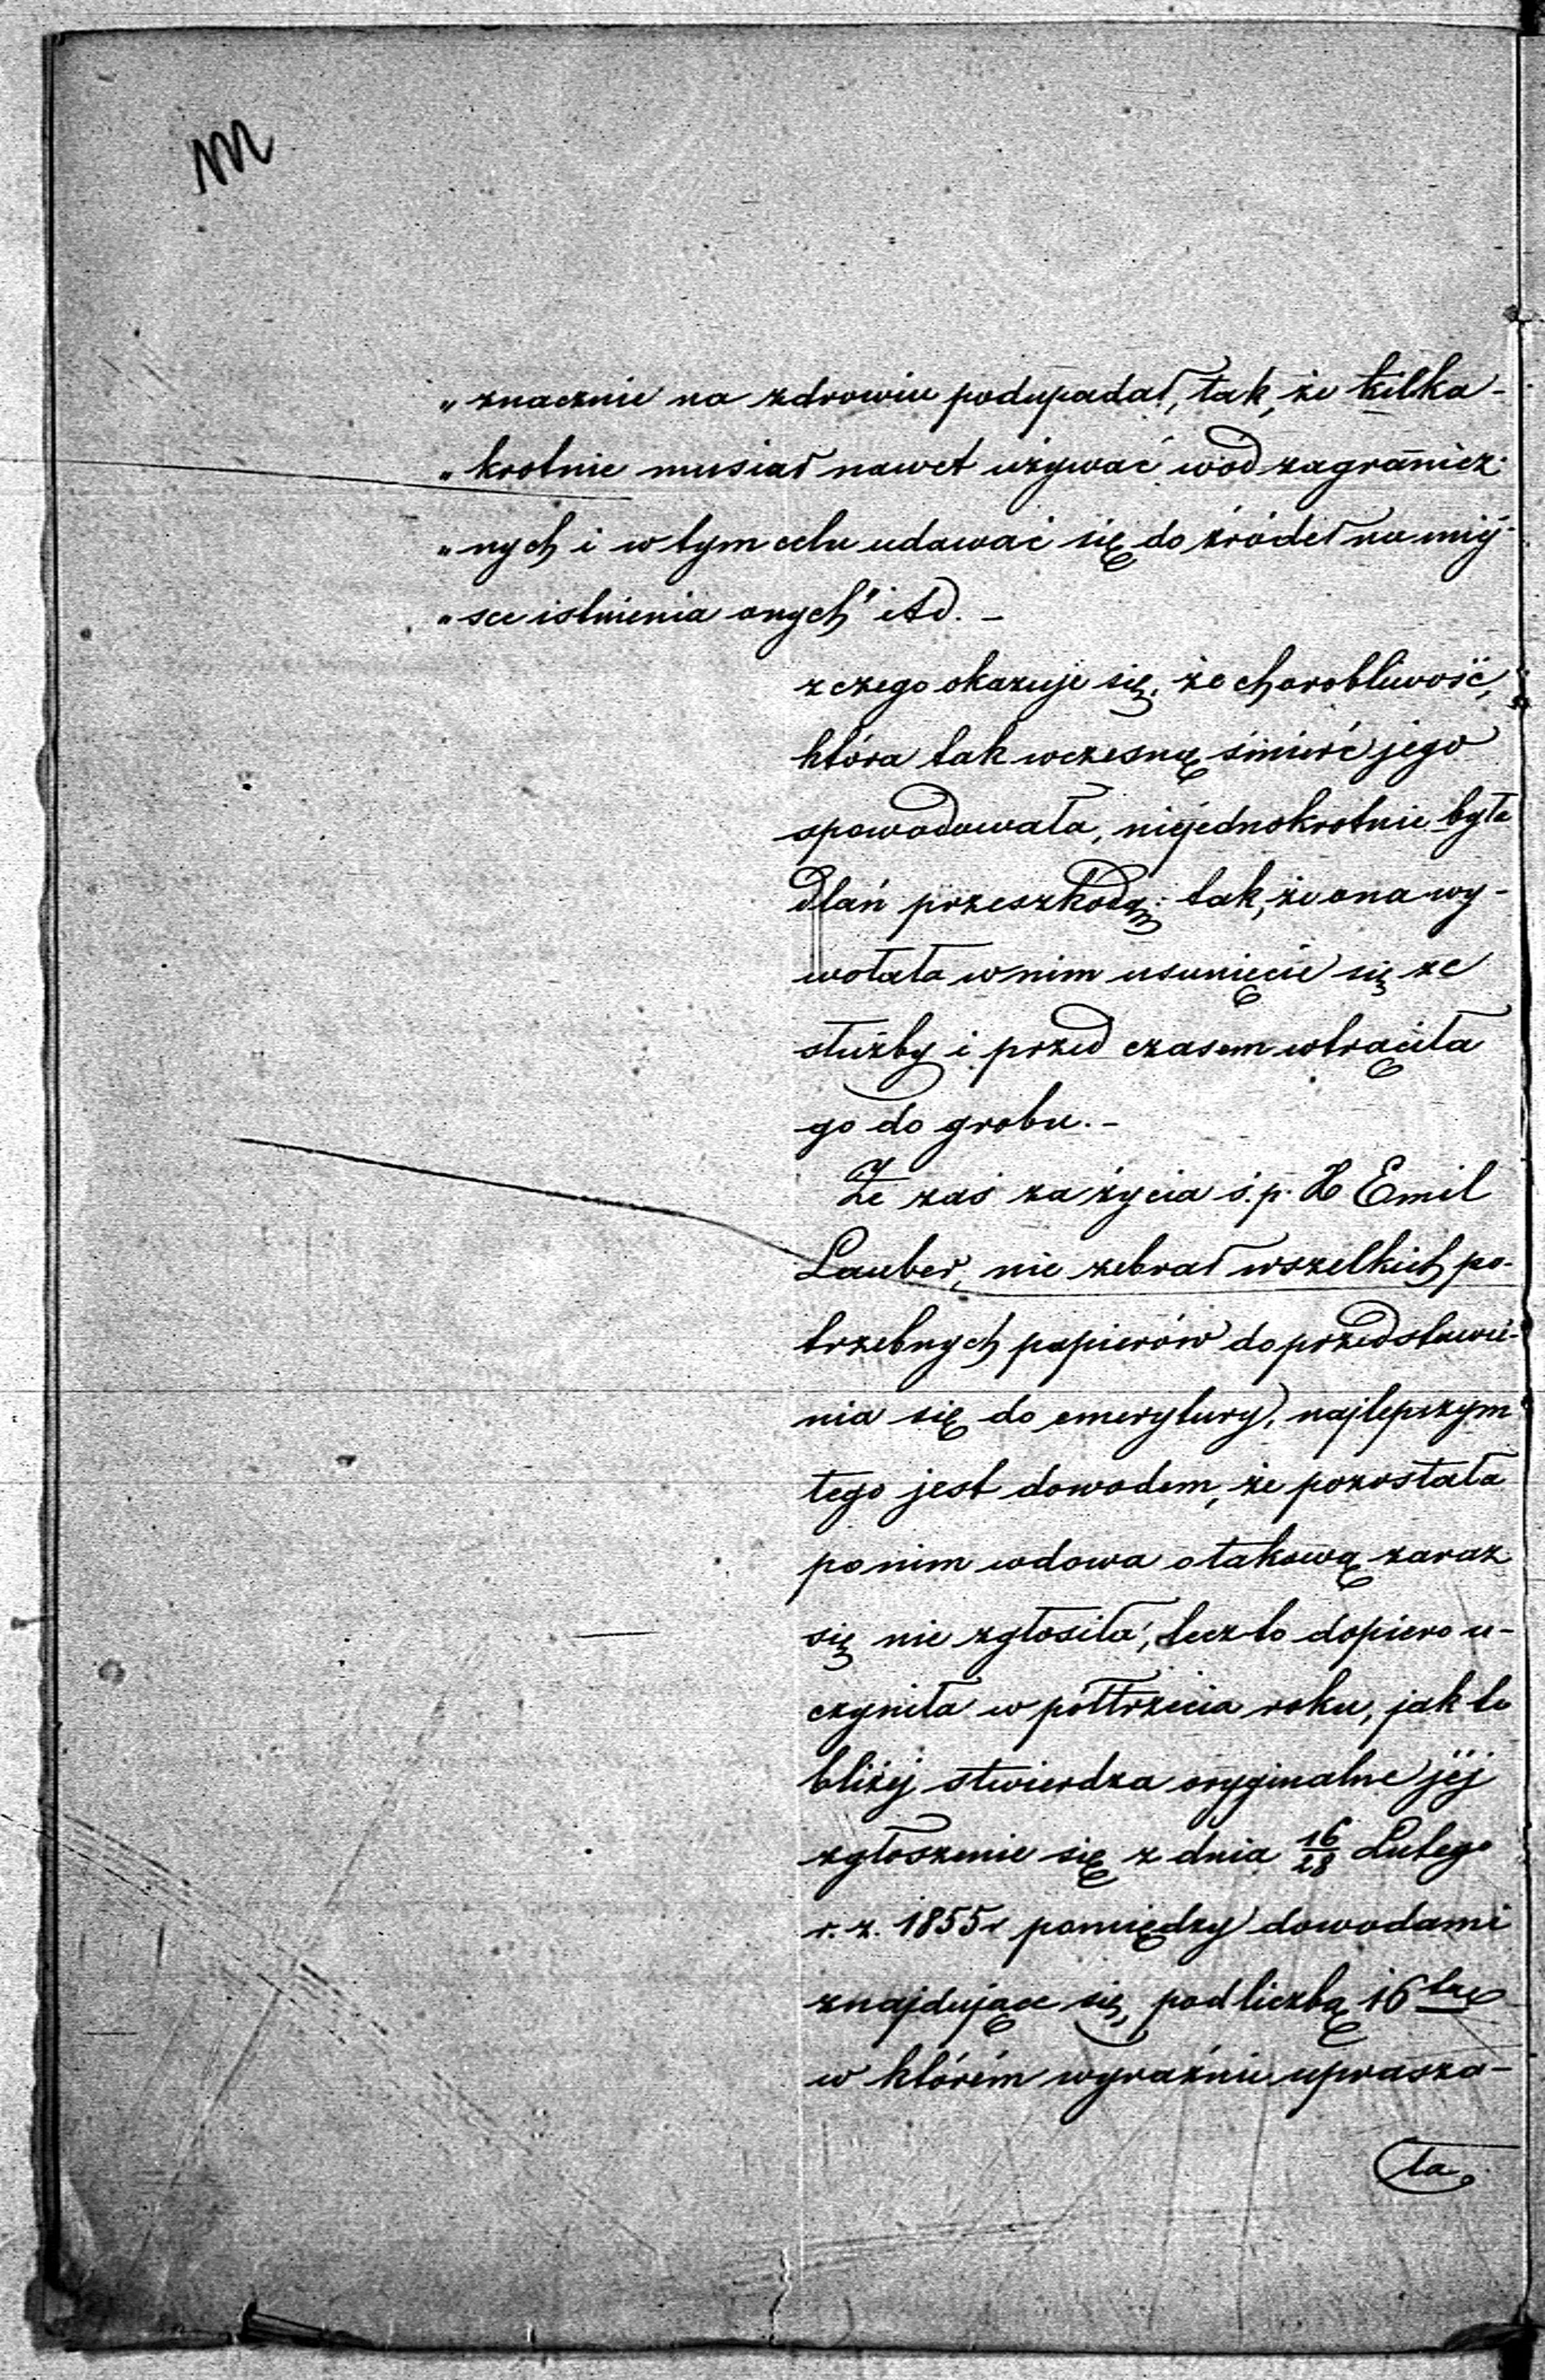 „znacznie na zdrowiu podupadał, tak, że kilka-
„krotnie musiał nawet używać wód zagranicz-
„nych i w tym celu udawać się do źródeł na miéj-
„sce istnienia onych" itd. –
z czego okazuje się, że chorobliwość,
która tak wczesną śmierć jego
spowodowała, niejednokrotnie była
dlań przeszkodą; tak, że ona wy-
wołała w nim usunięcie się ze
służby i przed czasem wtrąciła
go do grobu. –
Że zaś za życia ś. p. X Emil
Lauber, nie zebrał wszelkich po-
trzebnych papierów do przedstawie-
nia się do emerytury, najlepszym
tego jest dowodem, że pozostała
po nim wdowa o takową zaraz
się nie zgłosiła, lecz to dopiero u-
czyniła w półtrzecia roku, jak to
bliżéj stwierdza oryginalne jéj
zgłoszenie się z dnia 16/28 Lutego
r. z. 1855 r pomiędzy dowodami
znajdujące się, pod liczbą 16
w którém wyraźnie uprasza-
ła